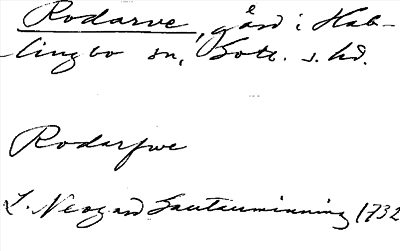 Rodarve, gård i Hab-
lingbo sn, Gotl. s. hd.
Rodarfwe
L. Neogard Gautauminning 1732